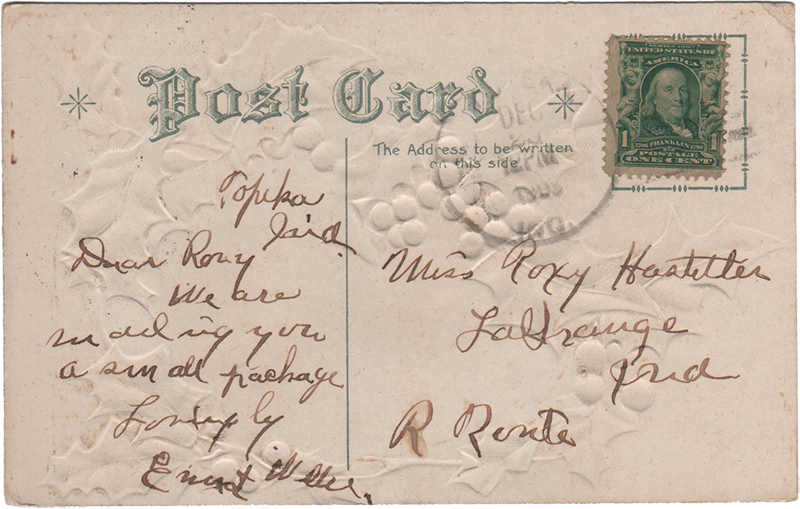 Post Card
The Address to be written
on this side.
SERIES 1902
UNITED STATES OF
AMERICA
1 1706 FRANKLIN 1790 1
POSTAGE
ONE CENT
DEC
12 PM
1908
IND.
Topeka
Ind.
Dear Roxy
We are
mailing you
a small package
Lovingly
Ernest
Miss Roxy Hostetler
LaGrange
Ind
R Route